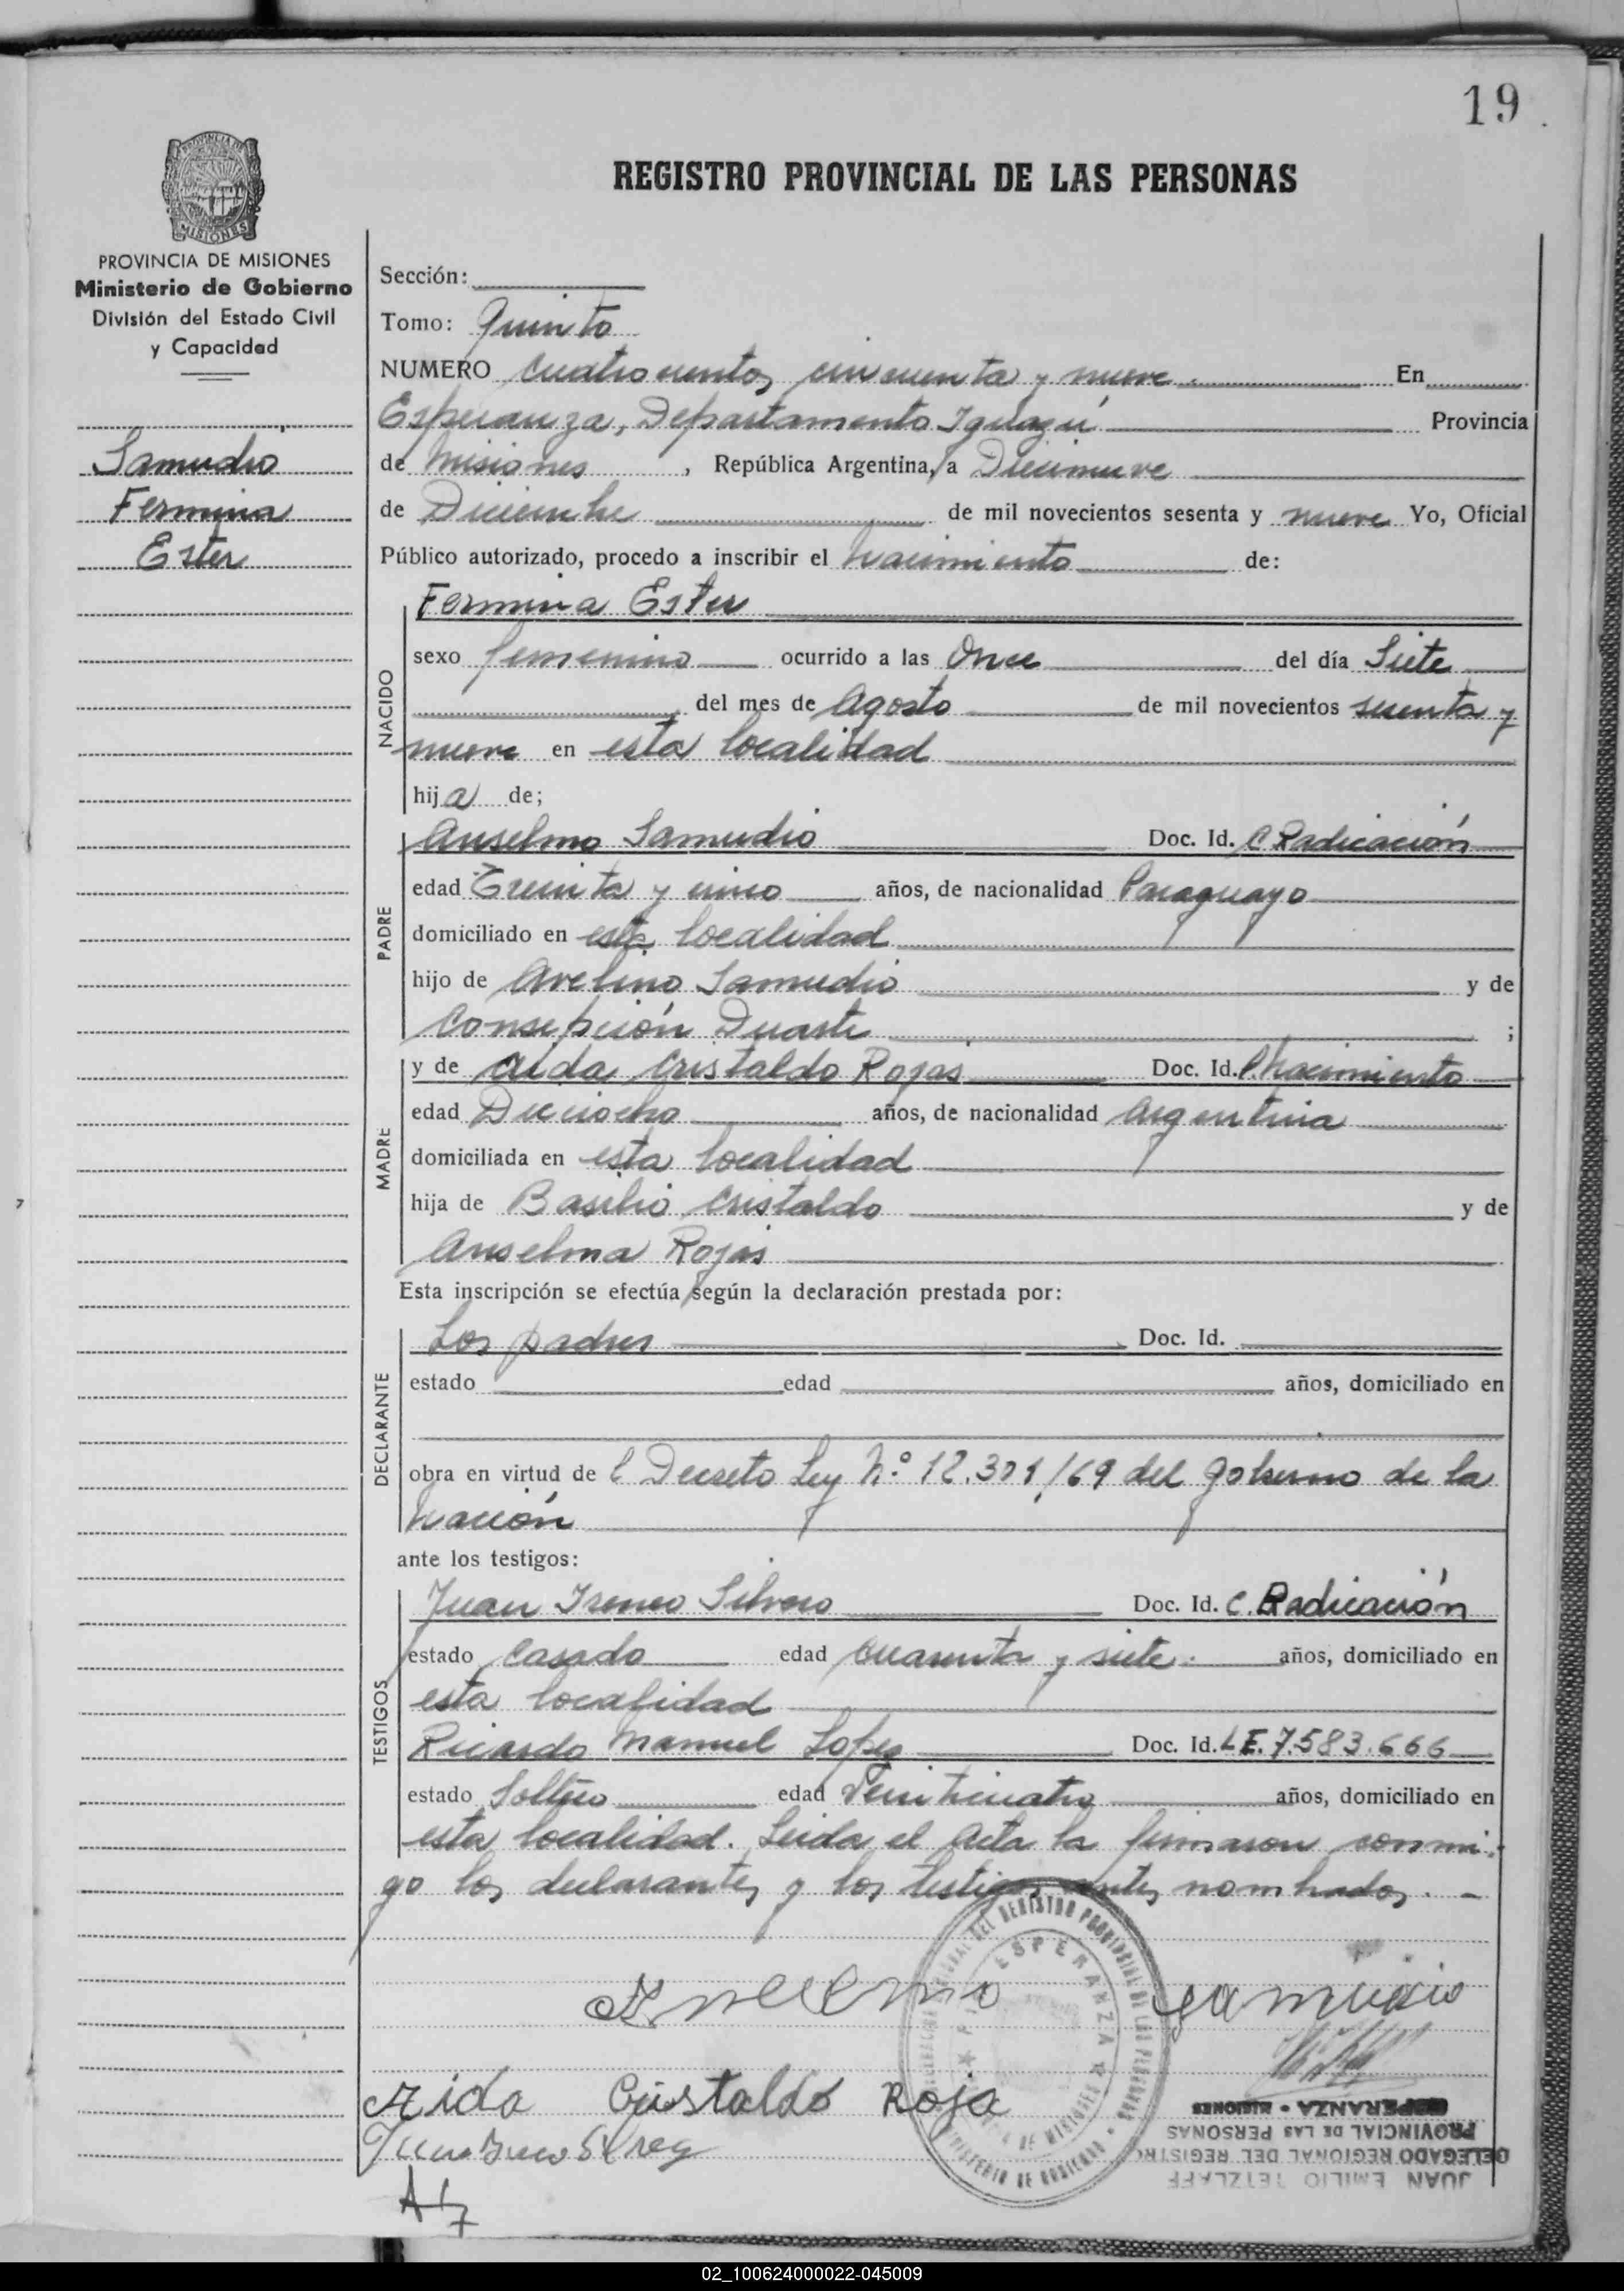 19
REGISTRO PROVINCIAL DE LAS PERSONAS
PROVINCIA DE MISIONES
Ministerio de Gobierno
División del Estado Civil
y Capacidad
Samudio
Fermina
Ester
Sección:
Tomo: Quinto
NUMERO Cuatrocientos cincuenta y nueve. En
Esperanza, Departamento Iguazú Provincia
de Misiones, República Argentina, a Diecinueve
de Diciembre de mil novecientos sesenta y nueve Yo, Oficial
Público autorizado, procedo a inscribir el Nacimiento de:
NACIDO
Fermina Ester
sexo femenino ocurrido a las Once del día Siete
del mes de Agosto de mil novecientos sesenta y
nueve en esta localidad
hija de;
PADRE
Anselmo Samudio Doc. Id. C Radicación
edad Treinta y cinco años, de nacionalidad Paraguayo
domiciliado en esta localidad
hijo de Avelino Samudio y de
Consepción Duarte ;
MADRE
y de Aida Cristaldo Rojas Doc. Id. P. Nacimiento
edad Dieciocho años, de nacionalidad Argentina
domiciliada en esta localidad
hija de Basilio Cristaldo y de
Anselma Rojas
Esta inscripción se efectúa según la declaración prestada por:
DECLARANTE
Los padres Doc. Id.
estado edad años, domiciliado en
obra en virtud de l Decreto Ley N.º 12.301/69 del Gobierno de la
Nación
ante los testigos:
TESTIGOS
Juan Ireneo Silvero Doc. Id. C. Radicación
estado Casado edad Cuarenta y siete. años, domiciliado en
esta localidad
Ricardo Manuel Lopes Doc. Id. L E. 7.583.666
estado Soltero edad Veinticuatro años, domiciliado en
esta localidad. Leida el Acta la firmaron conmi-
go los declarantes y los testigos antes nombrados. -
Ancelmo Samudio
Aida Cristaldo Roja
ESPERANZA
ESPERANZA - MISIONES
PROVINCIAL DE LAS PERSONAS
DELEGADO REGIONAL DEL REGISTRO
JUAN EMILIO TETZLAFF
02_100624000022-045009